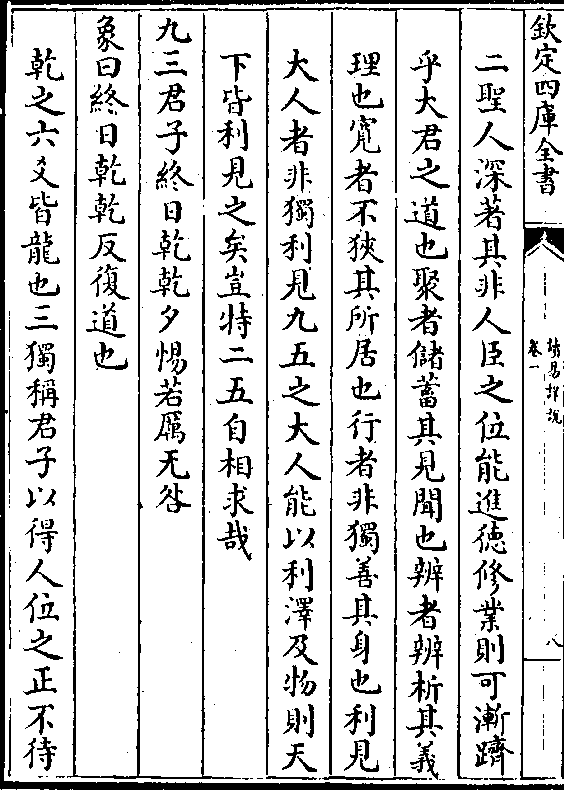 欽定四庫全書
讀易詳說
卷一
八
二聖人深著其非人臣之位能進德修業則可漸躋
乎大君之道也聚者儲蓄其見聞也辨者辨析其義
理也寬者不狹其所居也行者非獨善其身也利見
大人者非獨利見九五之大人能以利澤及物則天
下皆利見之矣豈特二五自相求哉
九三君子終日乾乾夕惕若厲无咎
象曰終日乾乾反復道也
乾之六爻皆龍也三獨稱君子以得人位之正不待